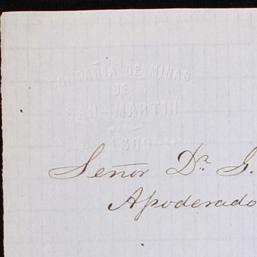 COMPAÑIA DE MINAS
DE
SAN-MARTIN
Señor Dr. G.
Apoderado